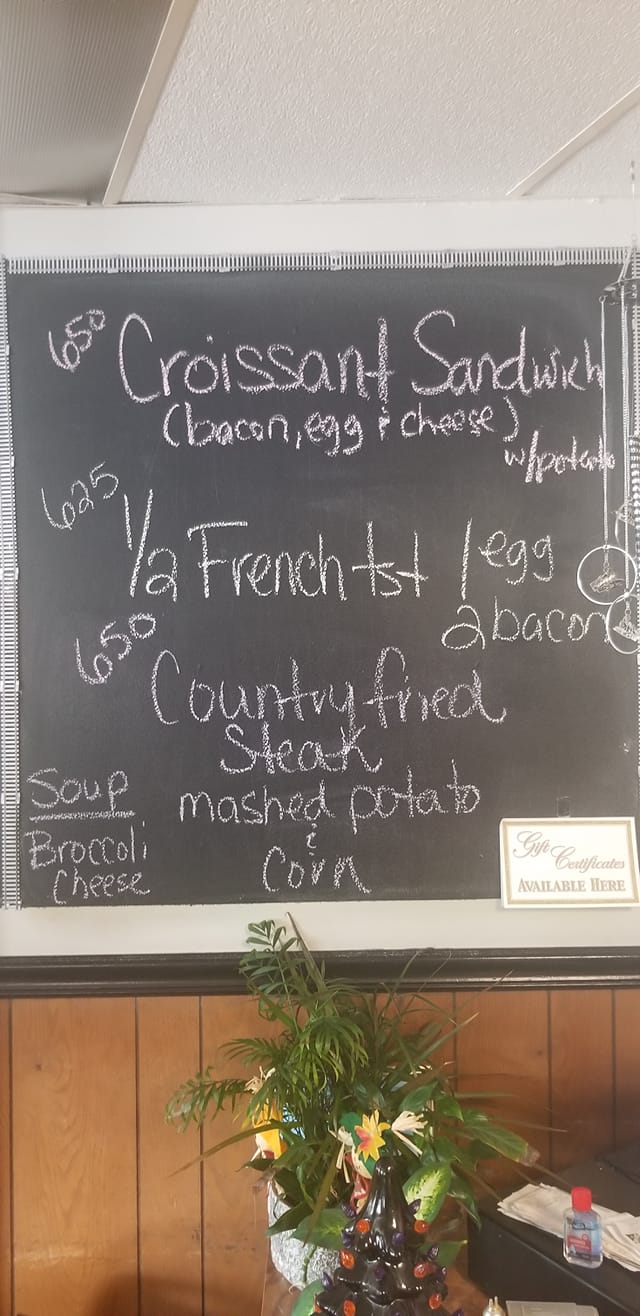 650 Croissant Sandwich
(bacon, egg & cheese)
w/potato
625 1/2 French tst 1 egg
2 bacon
650 Country fried
Steak
mashed potato
&
Corn
Soup
Broccoli
Cheese
Gift
Certificates
AVAILABLE HERE